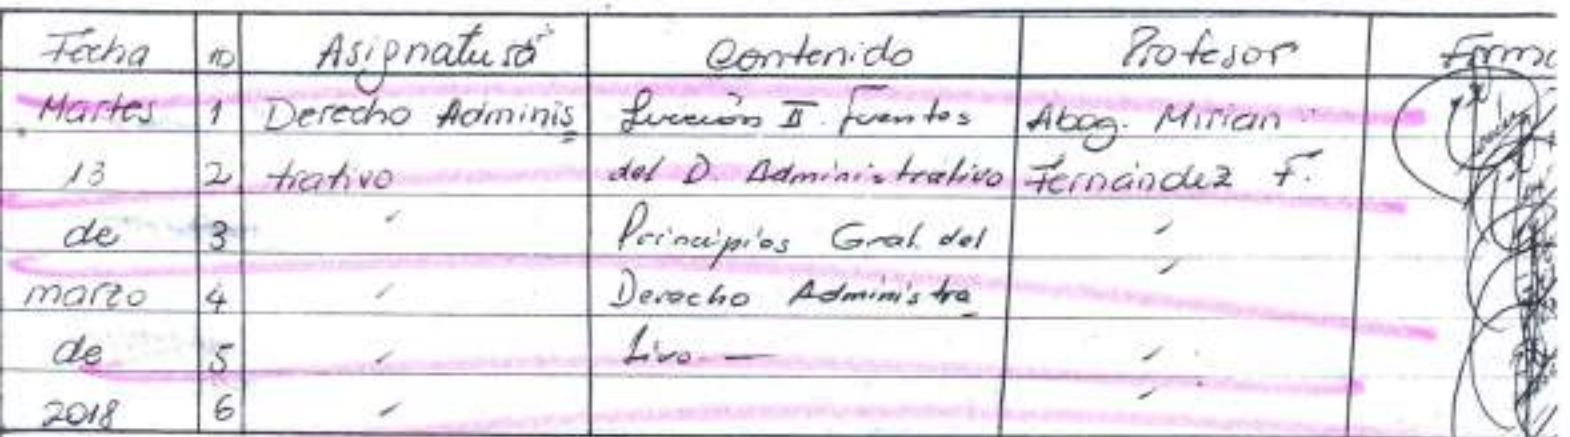 Fecha Nº Asignatura Contenido Profesor Firma
Martes 1 Derecho Adminis Lección II. Fuentes Abog. Mirian
13 2 trativo del D. Administrativo Fernández F.
de 3 " Principios Gral. del "
marzo 4 " Derecho Administra "
de 5 " tivo. — "
2018 6 " "